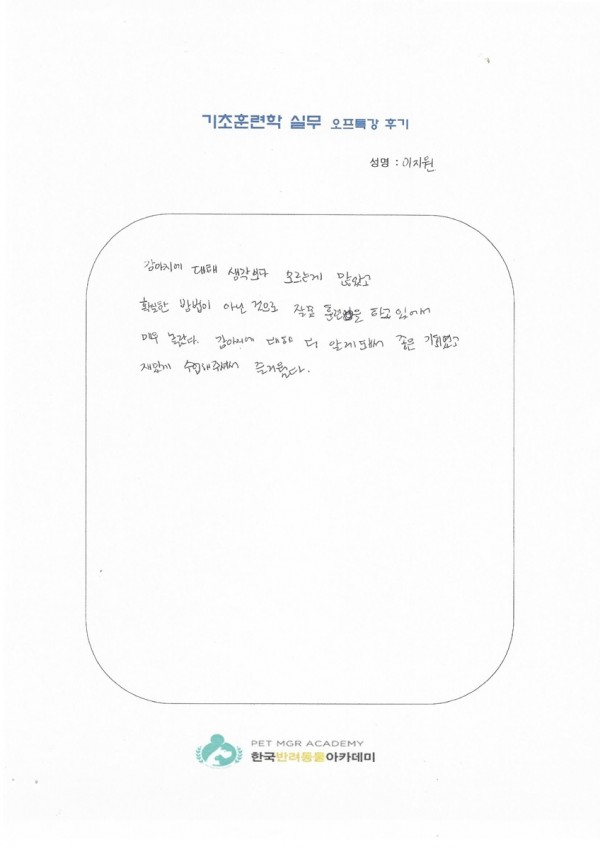 기초훈련학 실무 오프특강 후기
성명 : 이지원
강아지에 대해 생각보다 모르는게 많았고
확실한 방법이 아닌 것으로 잘못 훈련을 하고 있어서
매우 놀란다. 강아지에 대해 더 알게 돼서 좋은 기회였고
재밌게 수업해주셔서 즐거웠다.
PET MGR ACADEMY
한국반려동물아카데미